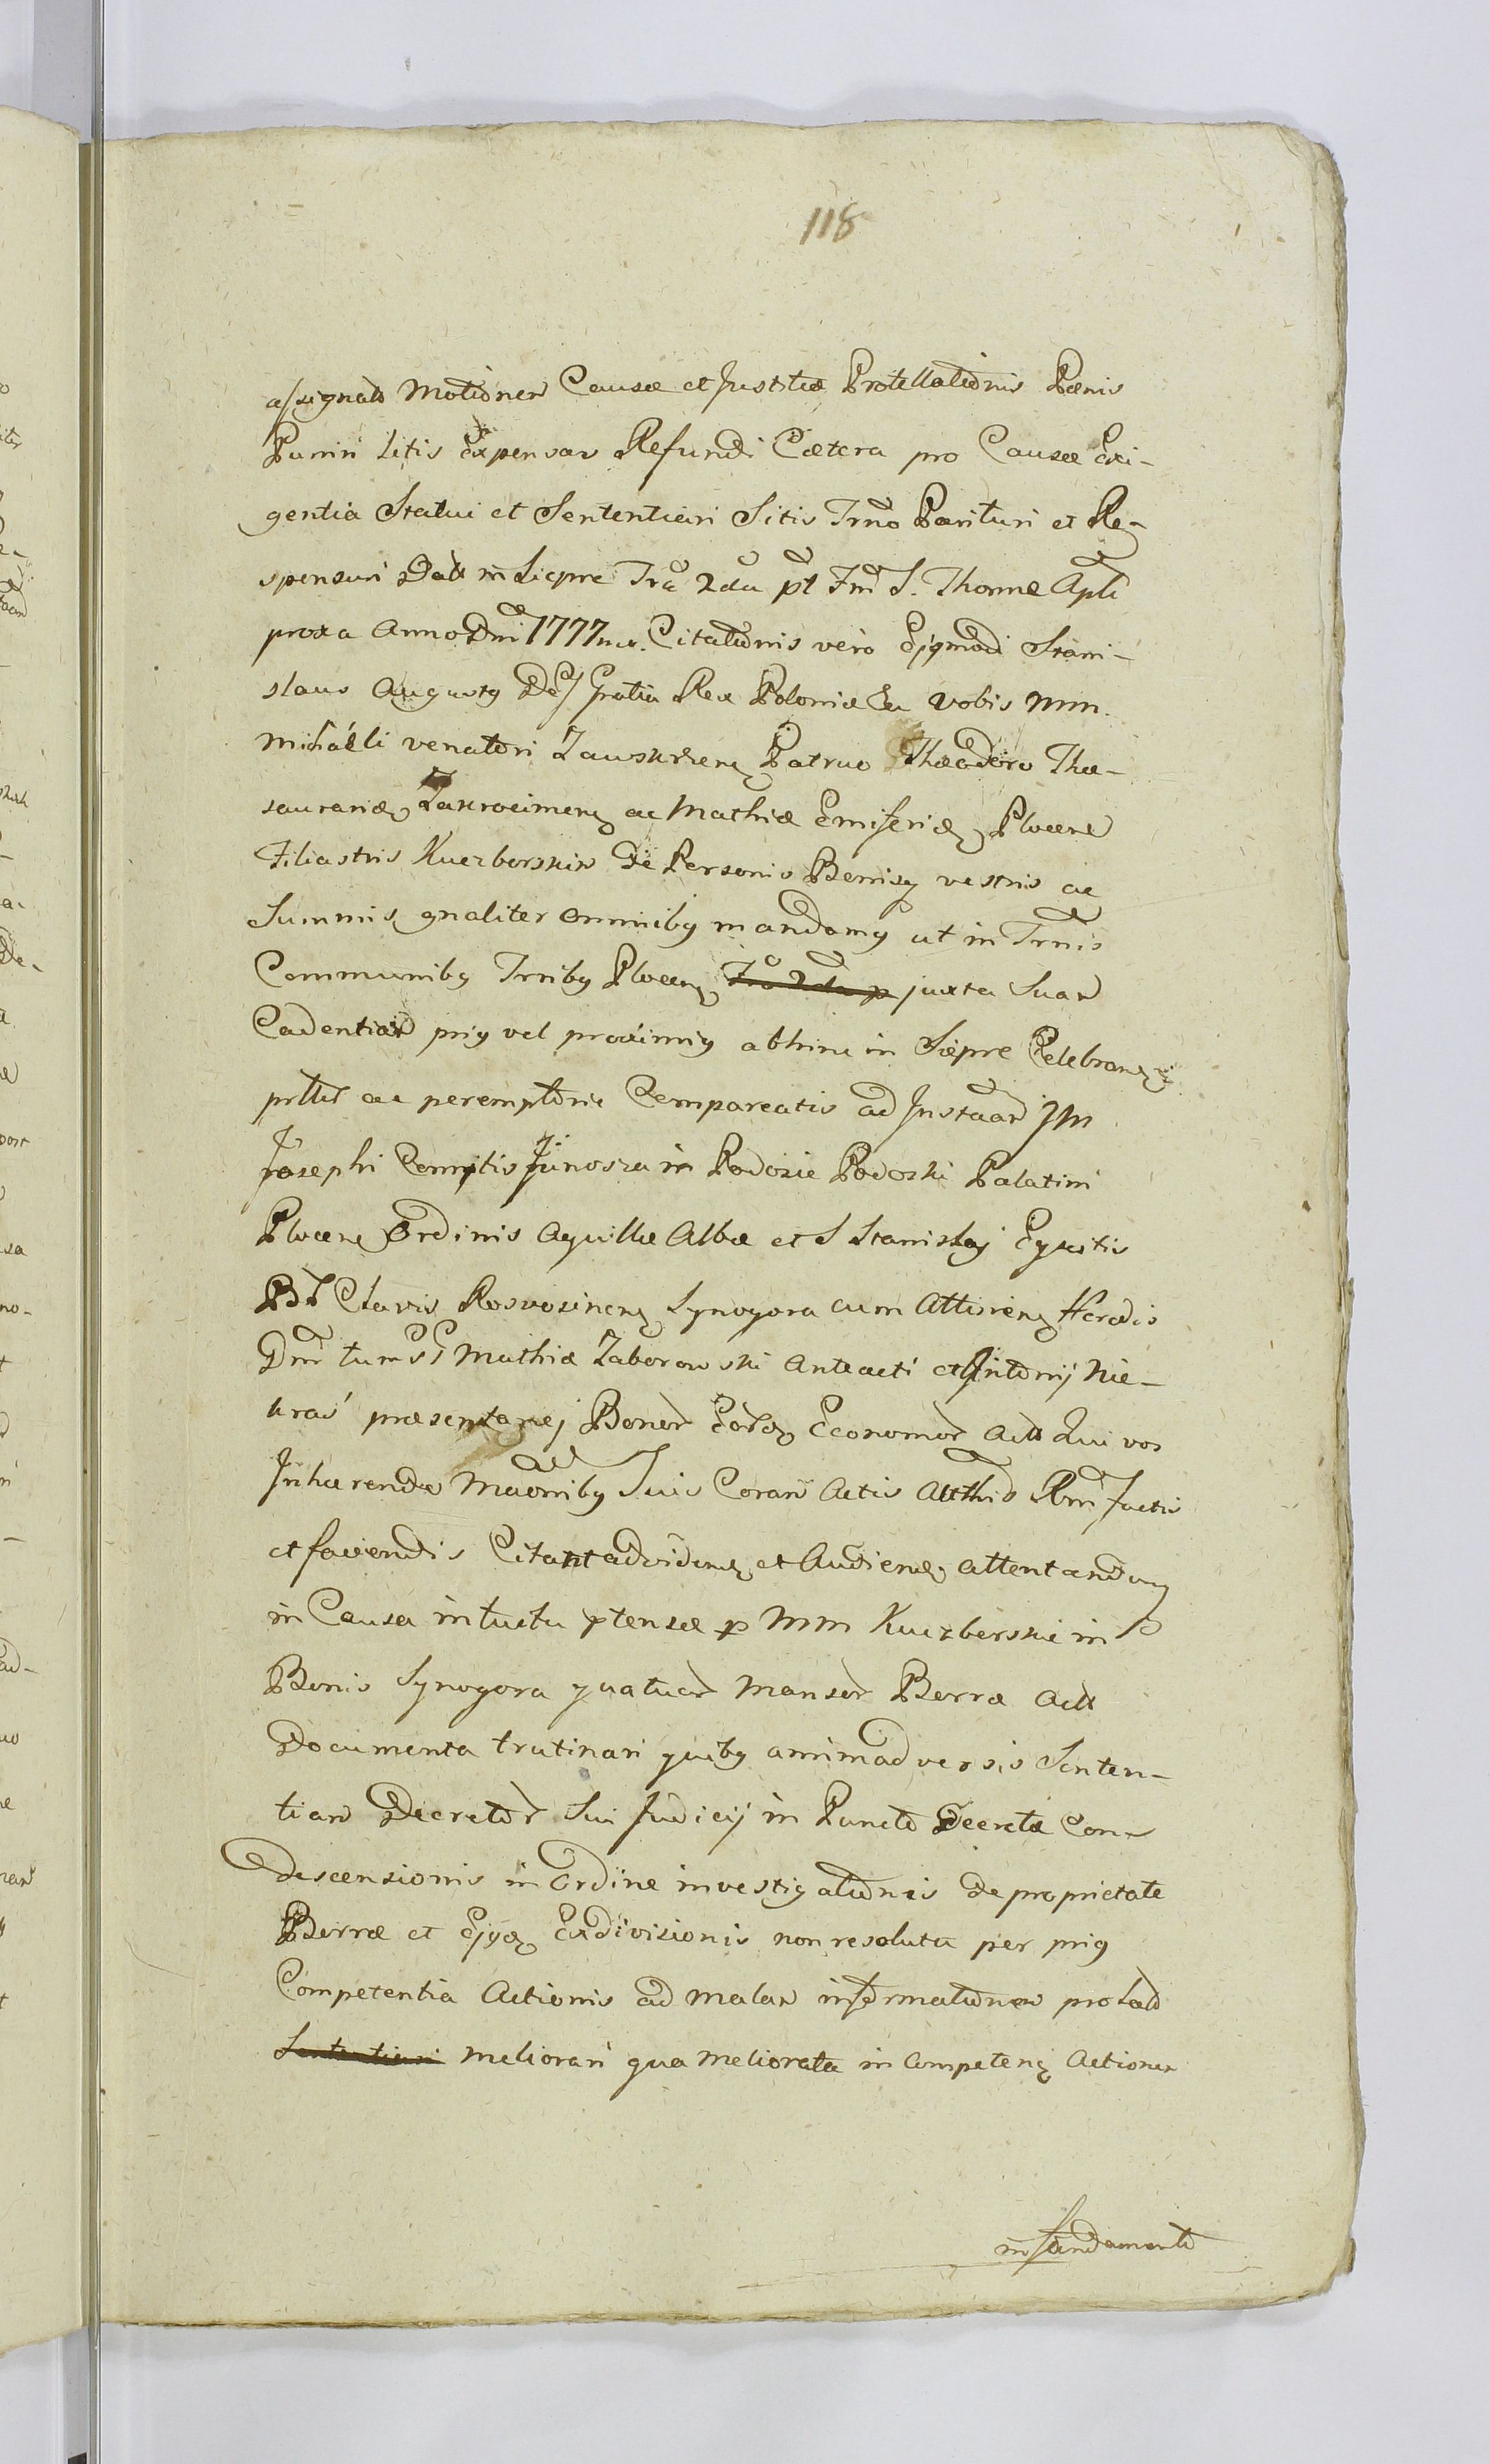 118
assignato Motionem Causæ et Justitiæ Protellationis Pænis
Puniri Litis Expensas Refundi Cætera pro Causæ Exi-
gentia Statui et Sententiari Sitis Trno Parituri et Re-
sponsuri Datt in Siepre Fra 2da pt Fm S. Thomæ Apli
proxa Anno Dni 1777mo. Citationis vero Ejqmodi Stani-
slaus Augusty Dei Gratia Rex Poloniæ Ea vobis Mm.
Michaëli venatori Zawskrzeng Patruo Theodoro The-
saurariæ Zakroeimeng ac Mathiæ Emiseriæ Plocens
Filiastris Kuczborskim de Personis Bonisq vestris ac
Summis gnaliter omniby mandamy ut in Trnis
Communiby Trniby Ploceng Fra 2da p juxta Suam
Cadentiam priy vel proximiy abhinc in Siepre Celebrang
prttr ac peremptorie Compareatis ad Instaam JM
Josephi Comitis Junosza in Podosie Podoski Palatini
Plocens Ordinis Aquillæ Albæ et S Stanislaj Eqvitis
Clavis Rosvozineng Synogora cum Attineng Herdis
Dni tum GG Mathiæ Zaborowski Anteacti et Antonij Nie-
kraś præsentanej Bonor Eorg Economor Actt Qui vos
Inhærendo Maonniby Suis Coram Actis Autthis Rm Factis
et faciendis Citant ad videng et Audieng attentandum
in Causa intuitu ptensæ p Mm Kuczborskie in
Bonis Synogora quatuor Mansor Berræ Actt
Documenta trutinari quiby animadversis Senten-
tiam Decretor Sui Judicij in Puncto Decreta Con-
descensionis in Ordine investigationis de proprietate
Berræ et Ejqg Exdivisionis non resoluta per priy
Competentia Actionis ad malam informationem prolat
Sententiari meliorari qua meliorata in Competeng Actionem
in fundamento